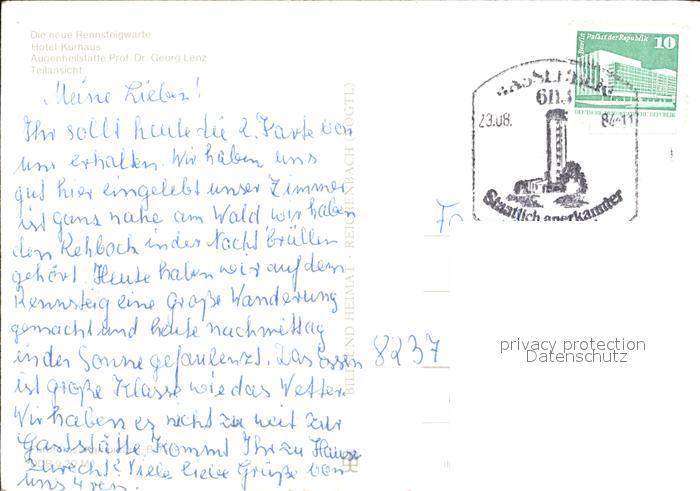 Die neue Rennsteigwarte
Hotel Kurhaus
Augenheilstätte Prof. Dr. Georg Lenz
Teilansicht
Meine Lieben!
Ihr sollt heute die 2. Karte von
uns erhalten. Wir haben uns
gut hier eingelebt unser Zimmer
ist ganz nahe am Wald wir haben
den Rehbock in der Nacht brüllen
gehört. Heute haben wir auf dem
Rennsteig eine große Wanderung
gemacht und heute nachmittag
in der Sonne gefaulenzt. Das Essen
ist große Klasse wie das Wetter.
Wir haben es nicht zu weit zur
Gaststätte. Kommt Ihr zu Hause
zurecht? Viele liebe Grüße von
uns 4ren.
BILD UND HEIMAT REICHENBACH (VOGTL)
Berlin Palast der Republik
10
6113
23.08.
84-11
Staatlich anerkannter
Fa
8237
privacy protection
Datenschutz